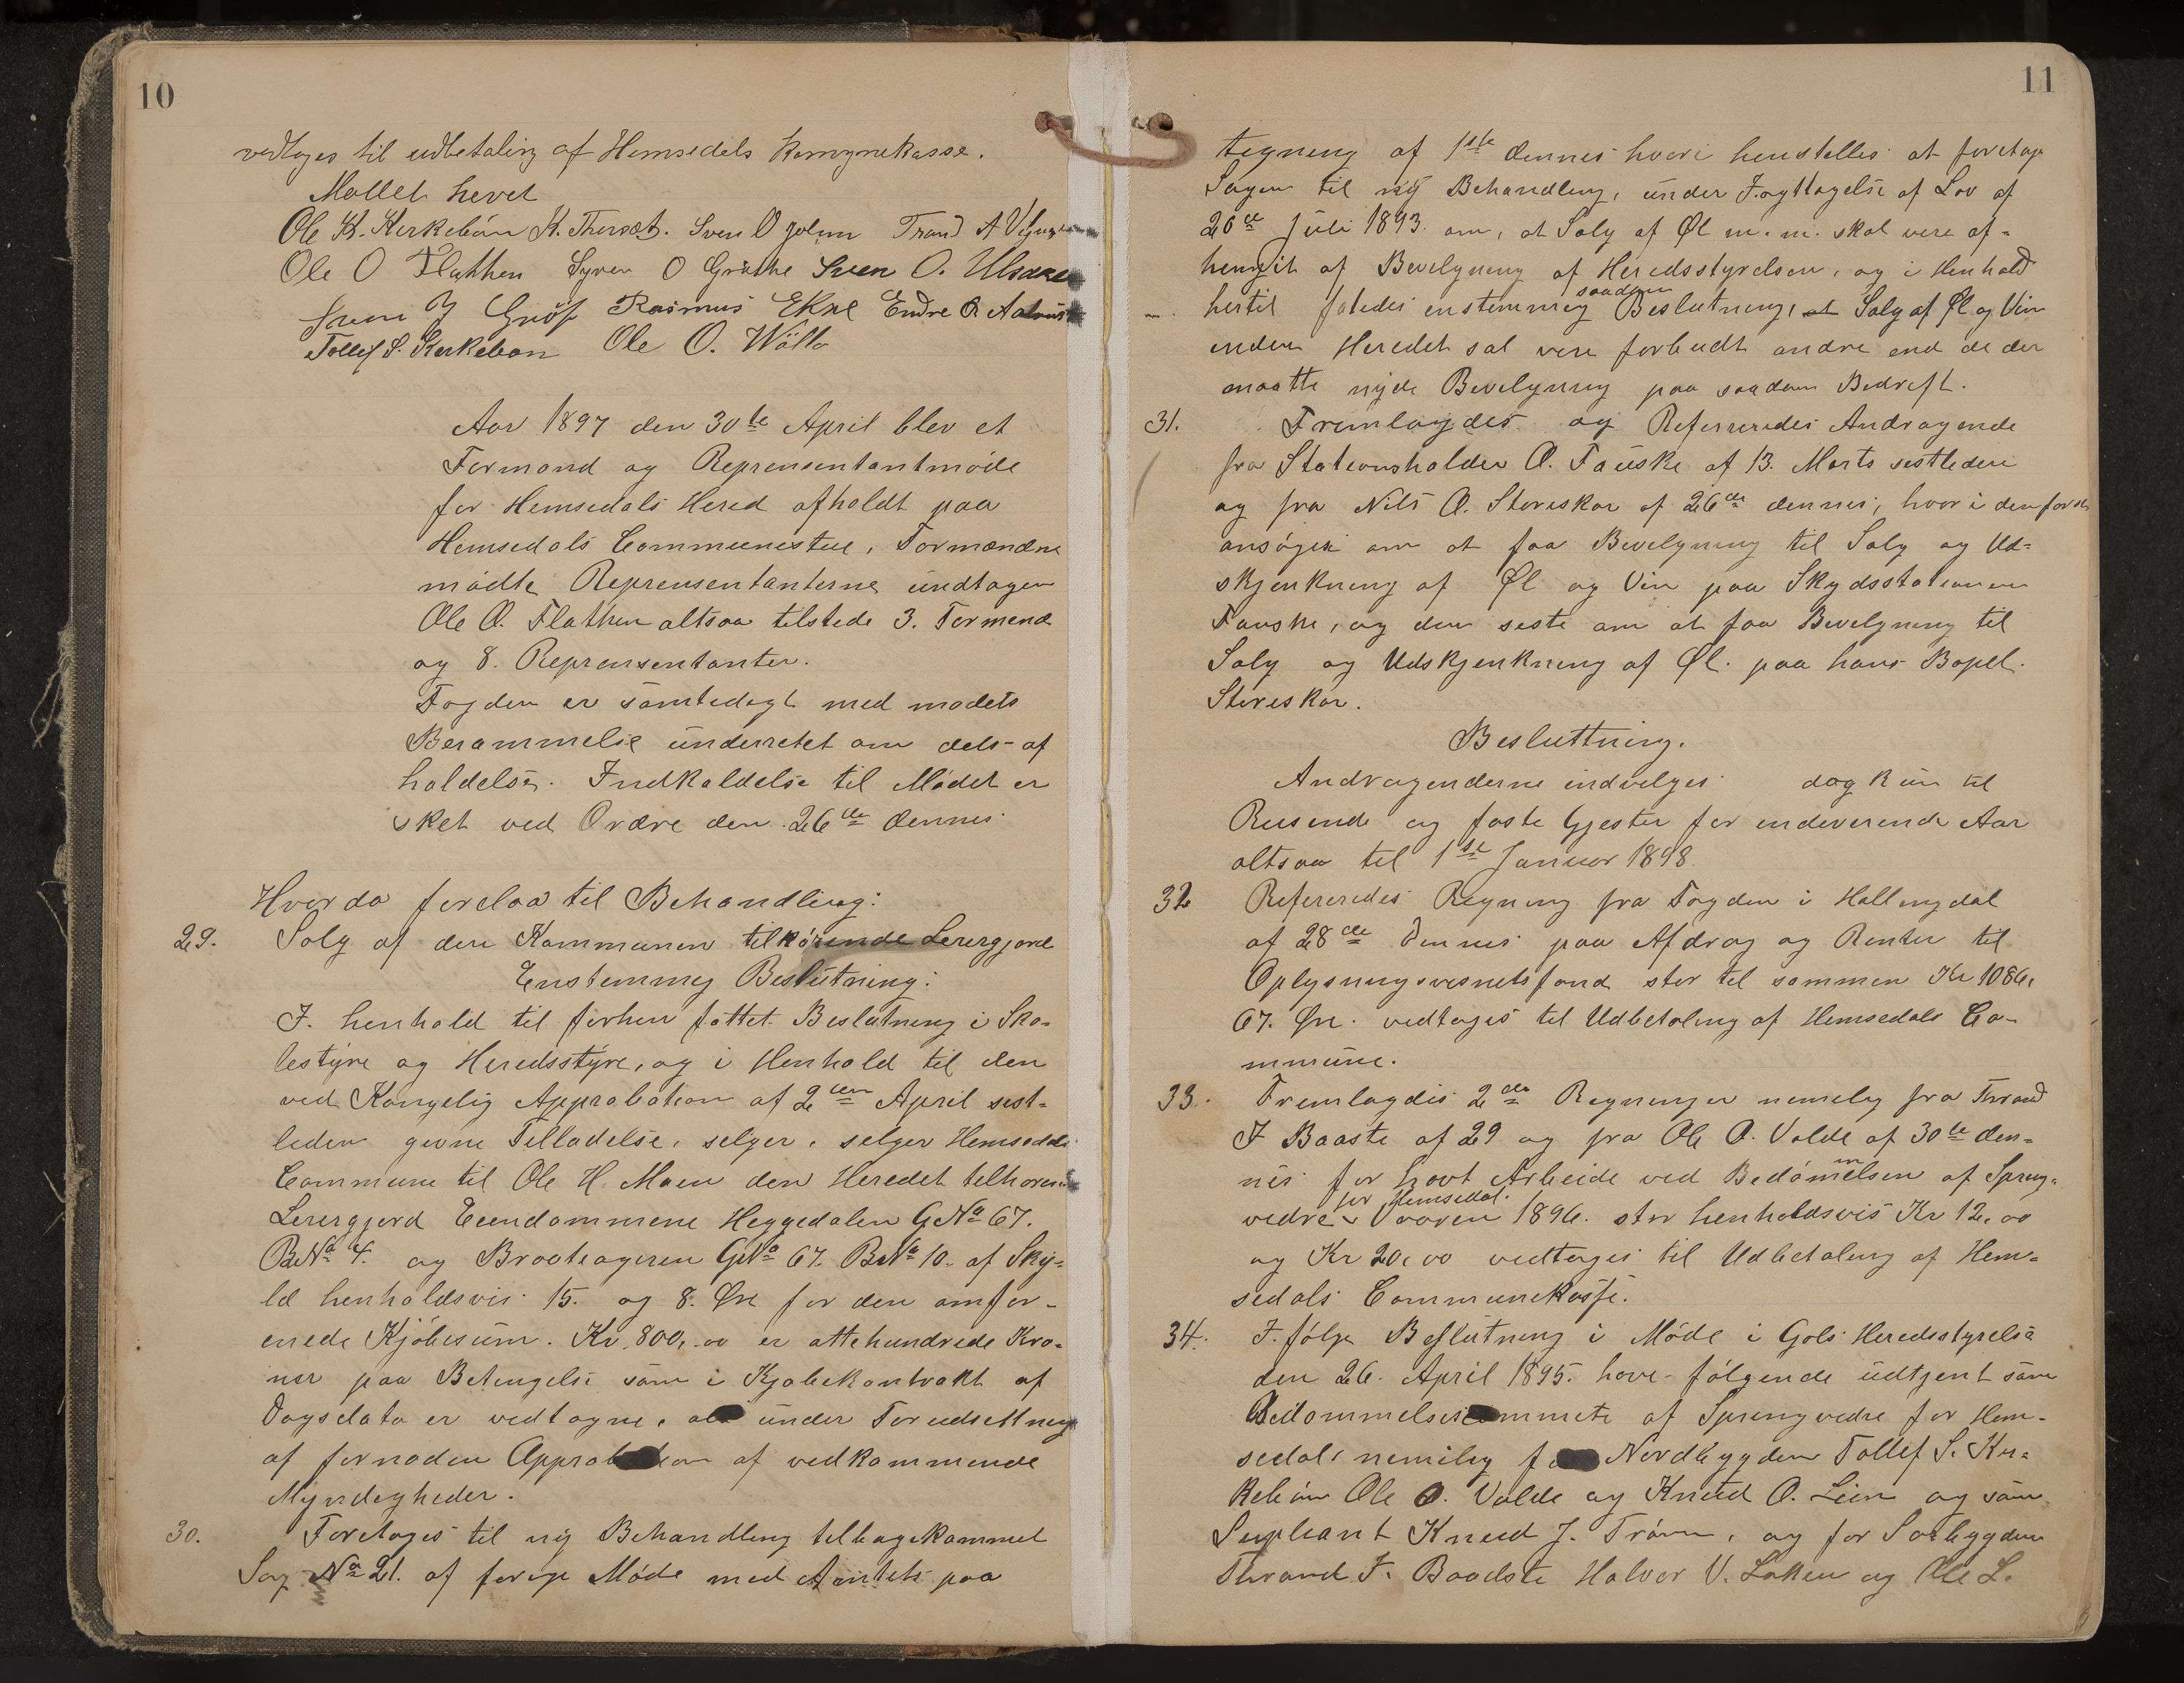 10
vedtoges til udbetaling af Hemsedals Komynekasse.
Mødet hevet
Ole K. Kirkebøn K. Thorset. Sven O Trand A
Ole O Flathen Syver O Grøthe Sven O. Ulsaker
Sven J Grøf Rasmus Ekre Endre O Aalrust
Tollef S. Kirkebøn Ole O. Wølla
Aar 1897 den 30te April blev et
Formand og Reprensentantmøde
for Hemsedals Hered afholdt paa
Hemsedals Communestue, Formændne
mødte Reprensentanterne undtagen
Ole O. Flathen altsaa tilstede 3. Formend
og 8. Reprensentanter.
Fogden er samtedigt med mødets
Berammelse underretet om dets af
holdelse. Indkaldelse til Mødet er
sket ved Ordre den 26de dennes
Hvor da forelaa til Behandling:
29. Salg af den Kommunen tilhørende Lerergjord
Enstemmig Beslutning:
I. henhold til forhen fattet Beslutning i Sko-
lestyre og Heredsstyre, og i Henhold til den
ved Kongelig Approbation af 2den April sist-
leden givne Tilladelse, selger, selger Hemsedals
Commune til Ole H. Moen den Heredet tilhørende
Lerergjord Eiendommene Heggedalen GNo 67.
BNo 4. og Brooteageren GNo 67. BNo 10. af Sky-
ld henholdsvis 15. og 8. Øre for den omfor-
enede Kjøbesum. Kr. 800,00 er ottehundrede Kro-
ner paa Betingelse som i Kjøbekontrakt af
Dagsdato er vedtagne, alt under Forudsettning
af fornøden Approbation af vedkommende
Myndigheder.
30. Foretoges til ny Behandling tilbagekommet
Sag No 21. af forrige Møde med Amtets paa
11
tegning af 1ste dennes hvori henstilles at foretage
Sagen til ny Behandling, under Iagttagelse af Lov af
26de Juli 1893 om, at Salg af Øl m.m. skal vere af-
hengit af Bevilgning af Heredsstyrelsen, og i Henhold
hertil fatedes enstemmig saadan Beslutning, at Salg af Øl og Vin
inden Heredet sal vere forbudt andre end de der
maatte nyde Bevilgning paa saadan Bedrift.
31. Fremlagdes og Refereredes Andragende
fra Stationsholder O. Fauske af 13. Marts sistleden
og fra Nils O. Storeskar af 26de dennes, hvori den første
ansøger om at faa Bevilgning til Salg og Ud-
skjenkning af Øl og Vin paa Skydsstationen
Fauske, og den siste om at faa Bevilgning til
Salg og Udskjenkning af Øl. paa hans Bopel.
Storeskar.
Besluttning.
Andragenderne indvilges dog kun til
Reisende og faste Gjester for indeverende Aar
altsaa til 1ste Januar 1898
32 Refereredes Regning fra Fogden i Hallingdal
af 28de dennes paa Afdrag og Renter til
Oplysningsvesnetsfond stor til sammen Kr 1086,
67. Øre. vedtoges til Udbetaling af Hemsedals Co-
mmune.
33. Fremlagdes 2de Regninger nemelig fra Thrond
T Baaste af 29 og fra Ole O. Volde af 30te den-
nes for havt Arbeide ved Bedømmelsen af Spreng-
vedre for Hemsedal. Vaaren 1896. stor henholdsvis Kr 12,00
og Kr 20,00 vedtoges til Udbetaling af Hem-
sedals Communekasse.
34. I. følge Beslutning i Møde i Gols Heredsstyrelse
den 26. April 1895. have følgende udtjent som
Bedømmelseskommite af Sprengvedre for Hem-
sedal, nemelig for Nordbygden Tollef S. Kir-
kebøn Ole O. Volde og Knud O. Lien og som
Supleant Knud J. Trøim, og for Sørbygden
Thrand T. Baadste Halvor V. Løken og Ole L.